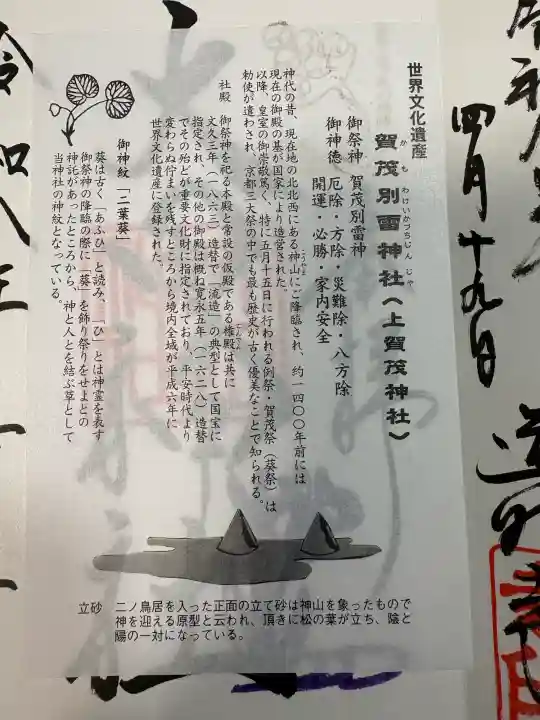 世界文化遺産
賀茂別雷神社(上賀茂神社)
かもわけいかづちじんじゃ
御祭神 賀茂別雷神
御神徳 厄除・方除・災難除・八方除
開運・必勝・家内安全
神代の昔、現在地の北北西にある神山にご降臨され、約一四〇〇年前には
こうやま
現在の御殿の基が国家により造営された。
以降、皇室の御崇敬篤く、特に五月十五日に行われる例祭・賀茂祭(葵祭)は
勅使が遣わされ、京都三大祭の中でも最も歴史が古く優美なことで知られる。
社殿 御祭神を祀る本殿と常設の仮殿である権殿は共に
文久三年(一八六三)造替で「流造」の典型として国宝に
指定され、その他の御殿は概ね寛永五年(一六二八)造替
でその殆どが重要文化財に指定されており、平安時代より
変わらぬ佇まいを残すところから境内全域が平成六年に
世界文化遺産に登録された。
御神紋「二葉葵」
葵は古く「あふひ」と読み、「ひ」とは神霊を表す
御祭神の降臨の際に「葵」を飾り祭りをせよとの
神託があったところから、神と人とを結ぶ草として
当神社の神紋となっている。
立砂 二ノ鳥居を入った正面の立て砂は神山を象ったもので
神を迎える原型と云われ、頂きに松の葉が立ち、陰と
陽の一対になっている。
四月十九日